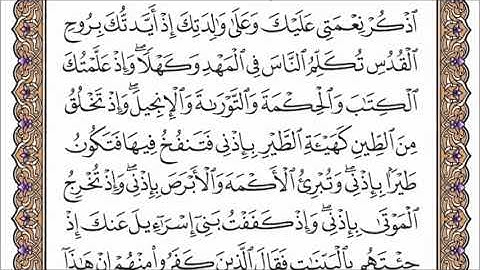 ٱذۡكُرۡ نِعۡمَتِي عَلَيۡكَ وَعَلَىٰ وَٰلِدَتِكَ إِذۡ أَيَّدتُّكَ بِرُوحِ
ٱلۡقُدُسِ تُكَلِّمُ ٱلنَّاسَ فِي ٱلۡمَهۡدِ وَكَهۡلٗاۖ وَإِذۡ عَلَّمۡتُكَ
ٱلۡكِتَٰبَ وَٱلۡحِكۡمَةَ وَٱلتَّوۡرَىٰةَ وَٱلۡإِنجِيلَۖ وَإِذۡ تَخۡلُقُ
مِنَ ٱلطِّينِ كَهَيۡـَٔةِ ٱلطَّيۡرِ بِإِذۡنِي فَتَنفُخُ فِيهَا فَتَكُونُ
طَيۡرَۢا بِإِذۡنِيۖ وَتُبۡرِئُ ٱلۡأَكۡمَهَ وَٱلۡأَبۡرَصَ بِإِذۡنِيۖ وَإِذۡ تُخۡرِجُ
ٱلۡمَوۡتَىٰ بِإِذۡنِيۖ وَإِذۡ كَفَفۡتُ بَنِيٓ إِسۡرَٰٓءِيلَ عَنكَ إِذۡ
جِئۡتَهُم بِٱلۡبَيِّنَٰتِ فَقَالَ ٱلَّذِينَ كَفَرُواْ مِنۡهُمۡ إِنۡ هَٰذَآ